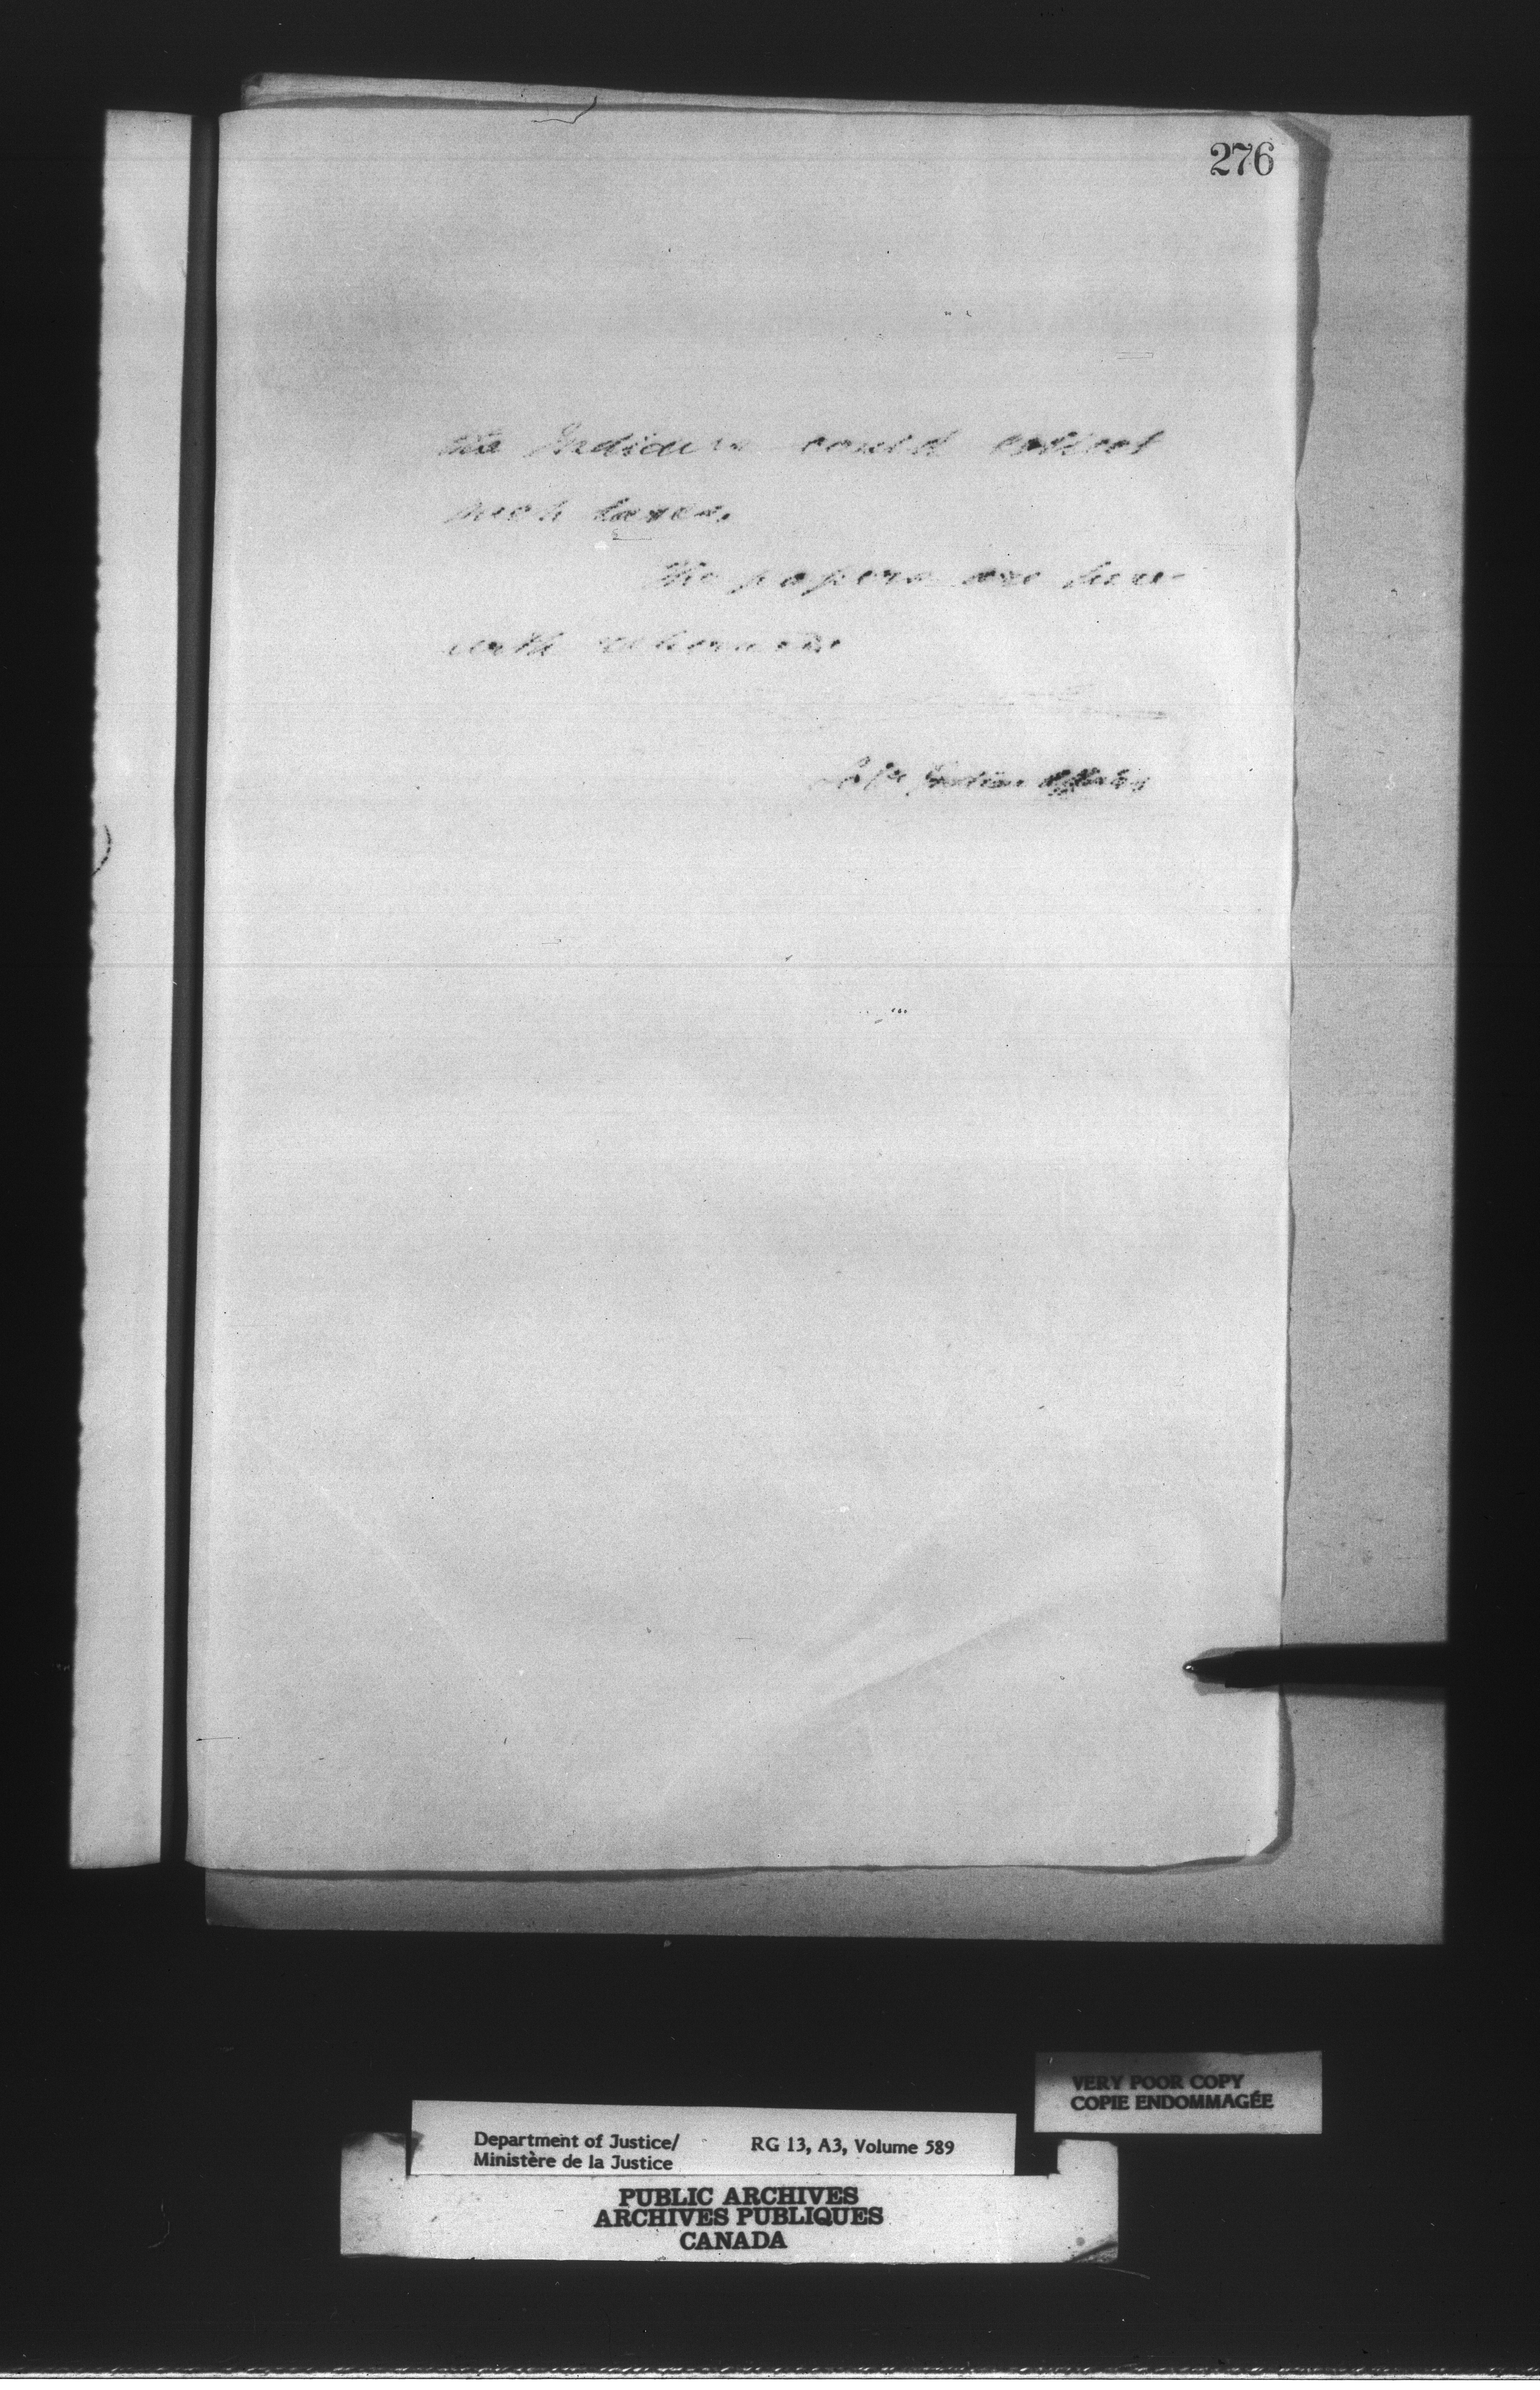 276
the Indians could collect
such taxes.
The papers are here-
with returned.
Indian Affairs
VERY POOR COPY
COPIE ENDOMMAGÉE
Department of Justice/ RG 13, A3, Volume 589
Ministère de la Justice
PUBLIC ARCHIVES
ARCHIVES PUBLIQUES
CANADA